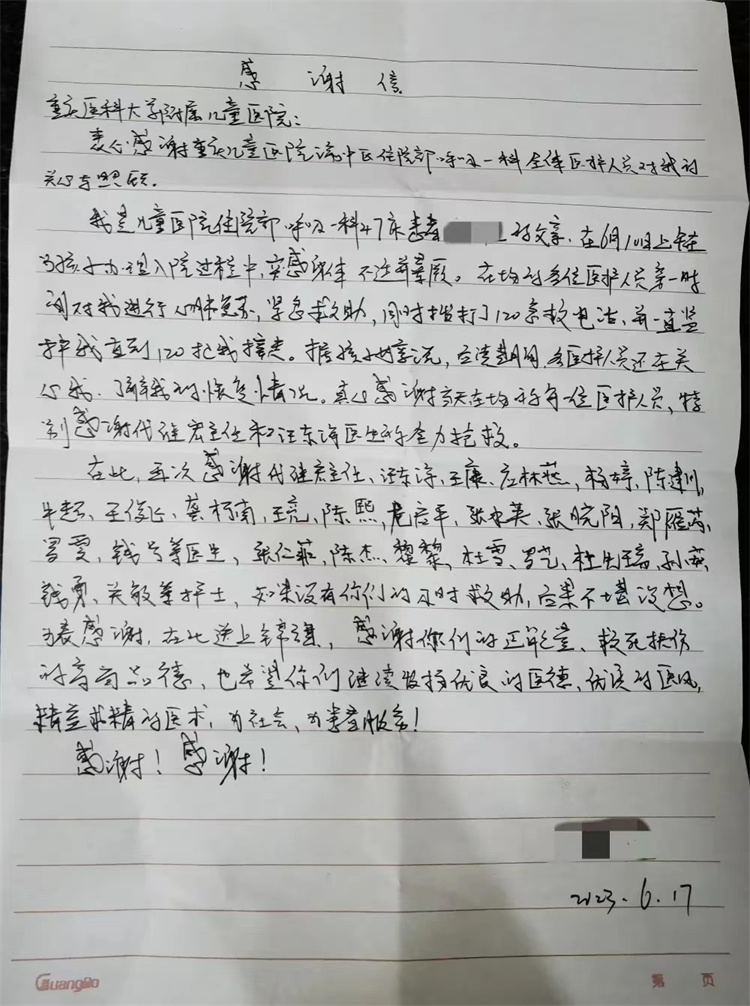 感 谢 信
重庆医科大学附属儿童医院:
衷心感谢重庆儿童医院渝中区住院部呼吸一科全体医护人员对我的
关心与照顾.
我是儿童医院住院部呼吸一科47床患者的父亲.在6月10日上午在
为孩子办理入院过程中,突感身体不适并晕厥。在场的多位医护人员第一时
间对我进行心肺复苏,紧急救助,同时拨打了120急救电话,并一直监
护我直到120把我接走。据孩子母亲说,空凌期间,多医护人员还在关
心我.了解我的恢复情况。真心感谢当天在场的每一位医护人员,特
别感谢代继宏主任和汪东海医生的全力抢救。
在此,再次感谢代继宏主任、汪东海、王康、应林燕,杨婷,陈建川,
牛超、王俊、龚柯南,王亮,陈熙,张永英,张皖阳,郑雁芮,
罗爱,钱等医生,张仁茹,陈杰、黎黎,杜雪,罗艺,孙燕
钱勇、关敏等护士,如果没有你们的及时救助,后果不堪设想。
为表感谢,在此送上锦旗,感谢你们的正能量、救死扶伤
的高尚品德,也希望你们继续发扬优良的医德,优误的医风,
精益求精的医术,为社会,为患者服务!
感谢! 感谢!
2023.6.17
GuangBo
第 页